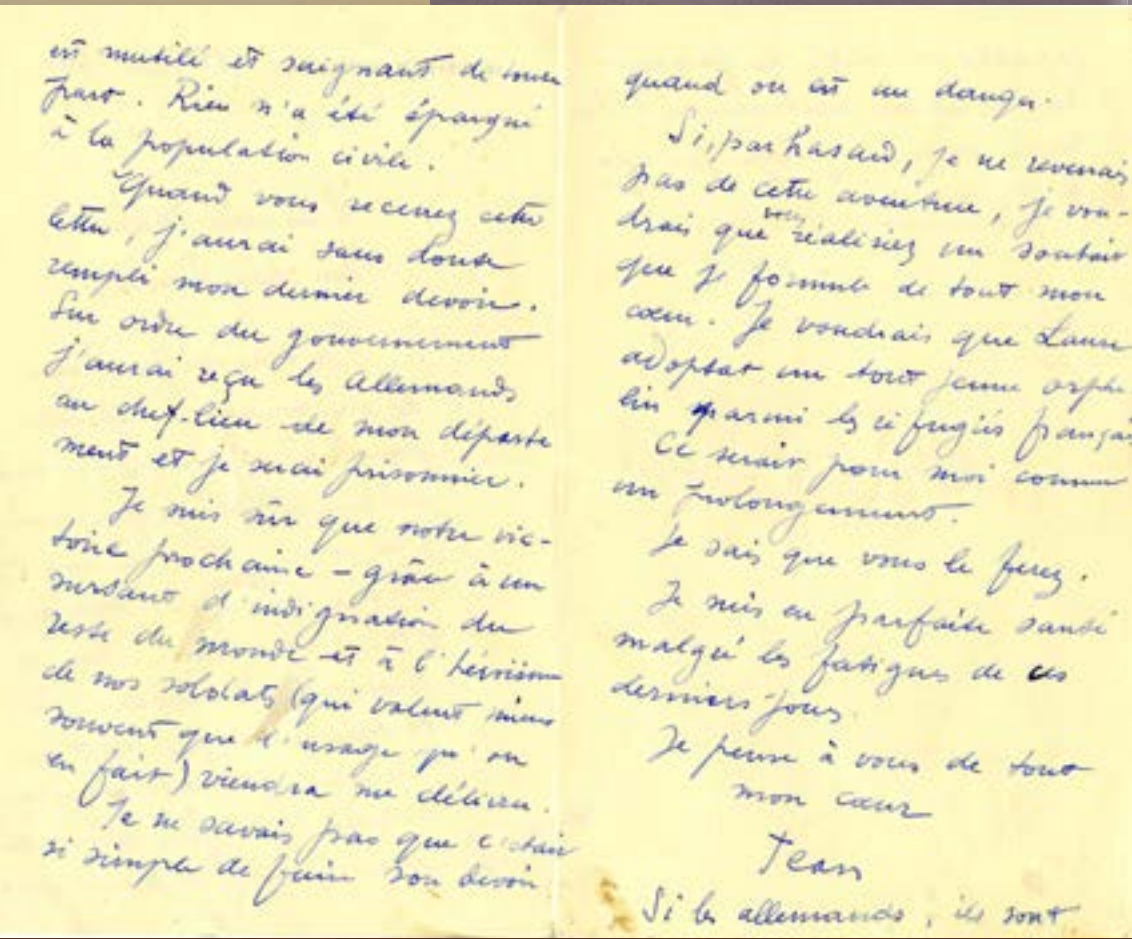 est mutilé et saignant de toute
part. Rien n'a été épargné
à la population civile.
Quand vous recevrez cette
lettre, j'aurai sans doute
rempli mon dernier devoir.
Sur ordre du gouvernement
j'aurai reçu les Allemands
au chef-lieu de mon départe
ment et je serai prisonnier.
Je suis sûr que notre vic-
toire prochaine - grâce à un
sursaut d'indignation du
reste du monde et à l'héroïsme
de nos soldats (qui valent mieux
souvent que l'usage qu'on
en fait) viendra me délivrer.
Je ne savais pas que c'était
si simple de faire son devoir
quand on est en danger.
Si, par hasard, je ne revenais
pas de cette aventure, je vou-
drais que vous réalisiez un souhait
que je formule de tout mon
cœur. Je voudrais que Laure
adoptat un tout jeune orphe
lin parmi les réfugiés français
Ce serait pour moi comme
un prolongement.
Je sais que vous le ferez.
Je suis en parfaite santé
malgré les fatigues de ces
derniers jours.
Je pense à vous de tout
mon cœur
Jean
Si les allemands, ils sont